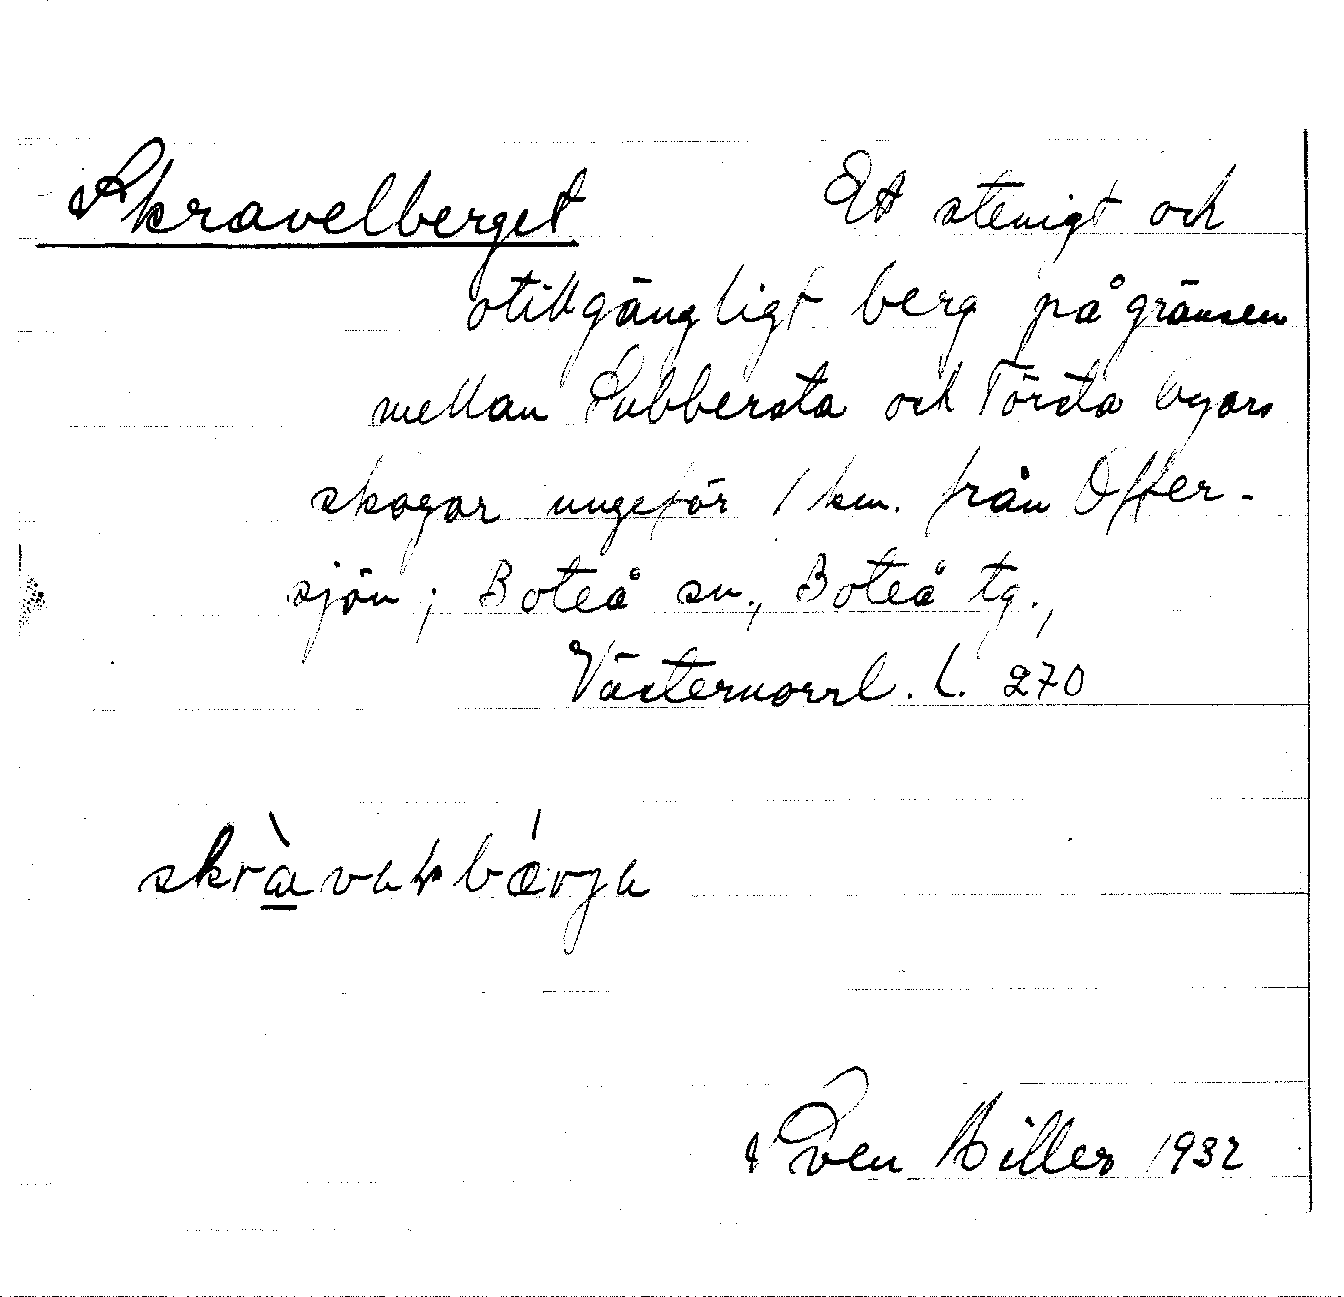 Skravelberget Ett stenigt och
otillgängligt berg på gränsen
mellan Subbersta och Törsta byars
skogar ungefär 1 km. från Offer-
sjön; Boteå sn., Boteå tg.,
Västernorrl. l. 270
Sven Hiller 1932